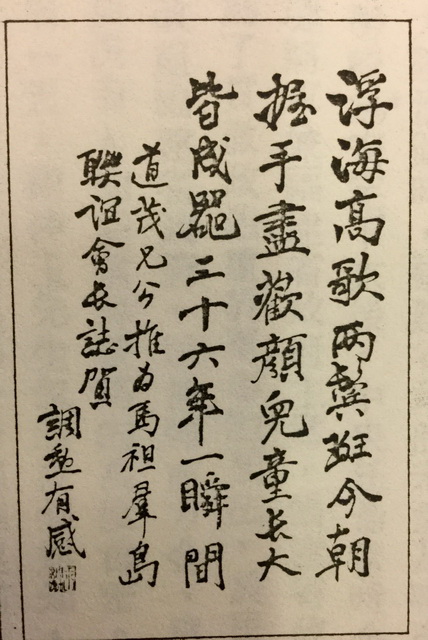 浮海高歌兩鬢斑今朝
握手盡歡顏兒童長大
皆成器三十六年一瞬間
道茂兄公推為馬祖羣島
聯誼會長誌賀
調勳有感